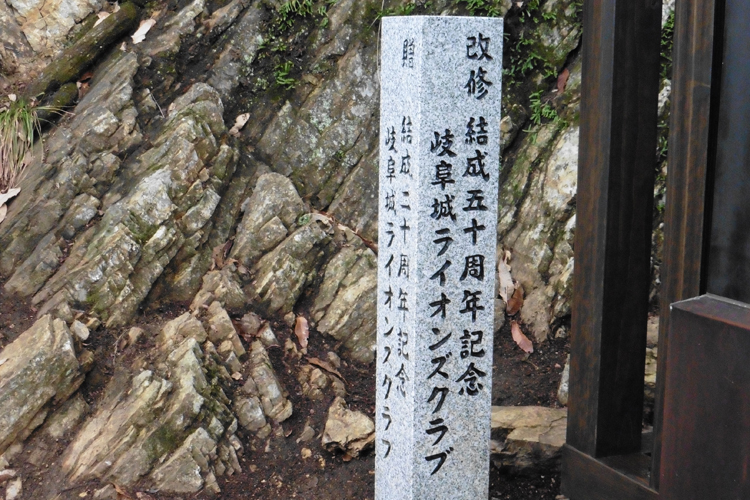 改修 結成五十周年記念
岐阜城ライオンズクラブ
贈 結成二十周年記念
岐阜城ライオンズクラブ